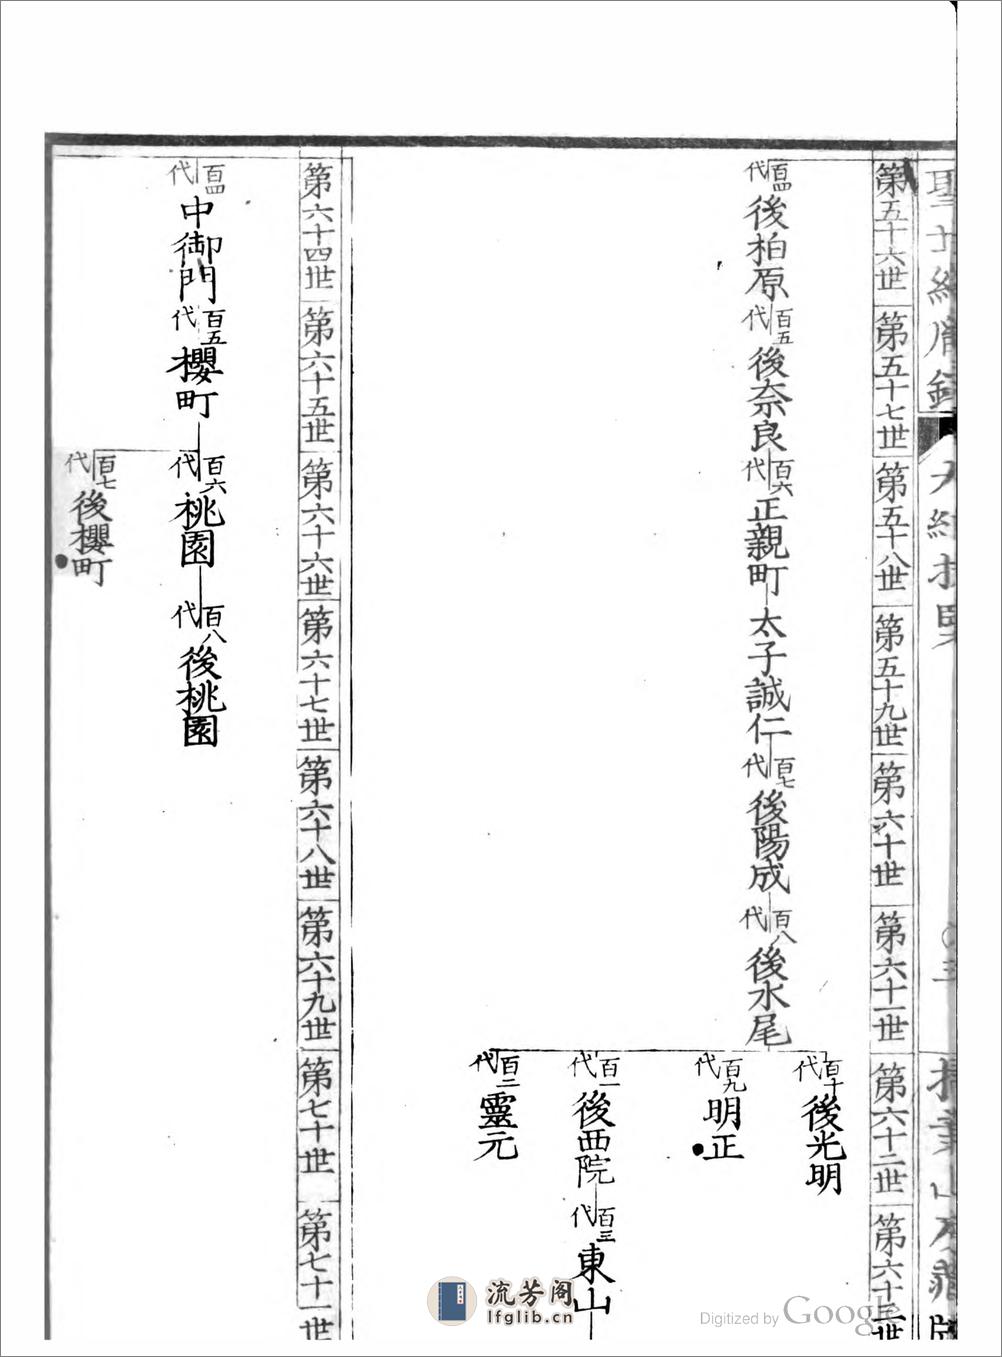 第五十六世 第五十七世 第五十八世 第五十九世 第六十世 第六十一世 第六十二世 第六十三世
百四代 後柏原 百五代 後奈良 百六代 正親町 太子誠仁 百七代 後陽成 百八代 後水尾
百十代 後光明
百九代 明正
百一代 後西院 百三代 東山
百二代 靈元
第六十四世 第六十五世 第六十六世 第六十七世 第六十八世 第六十九世 第七十世 第七十一世
百四代 中御門 百五代 櫻町 百六代 桃園 百八代 後桃園
百七代 後櫻町
流芳阁
lfglib.cn
Digitized by Google